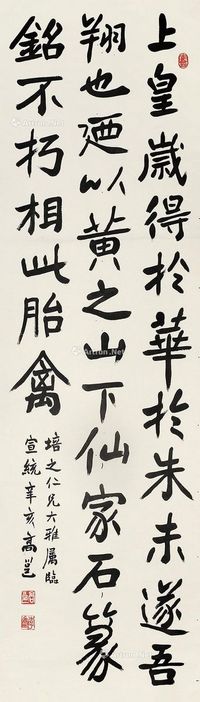 上皇歲得於華於朱未遂吾
翔也廼以黃之山下仙家石篆
銘不朽相此胎禽
培之仁兄大雅屬臨
宣統辛亥高邕